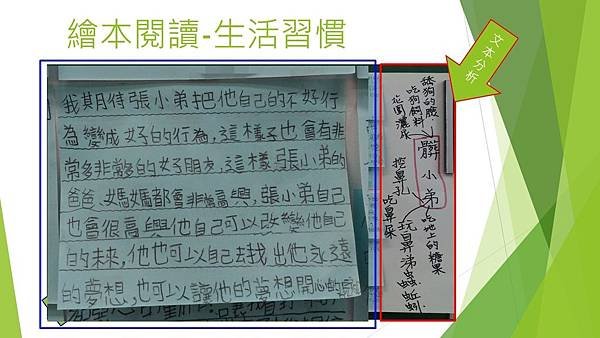 繪本閱讀-生活習慣
文本分析
我期待張小弟把他自己的不好行
為變成好的行為,這樣子也會有非
常多非常多的好朋友,這樣張小弟的
爸爸、媽媽都會非常高興,張小弟自己
也會很高興他自己可以改變他自己
的未來,他也可以自己去找出他永遠
的夢想,也可以讓他的夢想開心的
髒小弟
舔狗的臉
吃狗飼料
花園灑尿
挖鼻孔
吃鼻屎
吃地上的糖果
玩鼻涕蟲蚯蚓